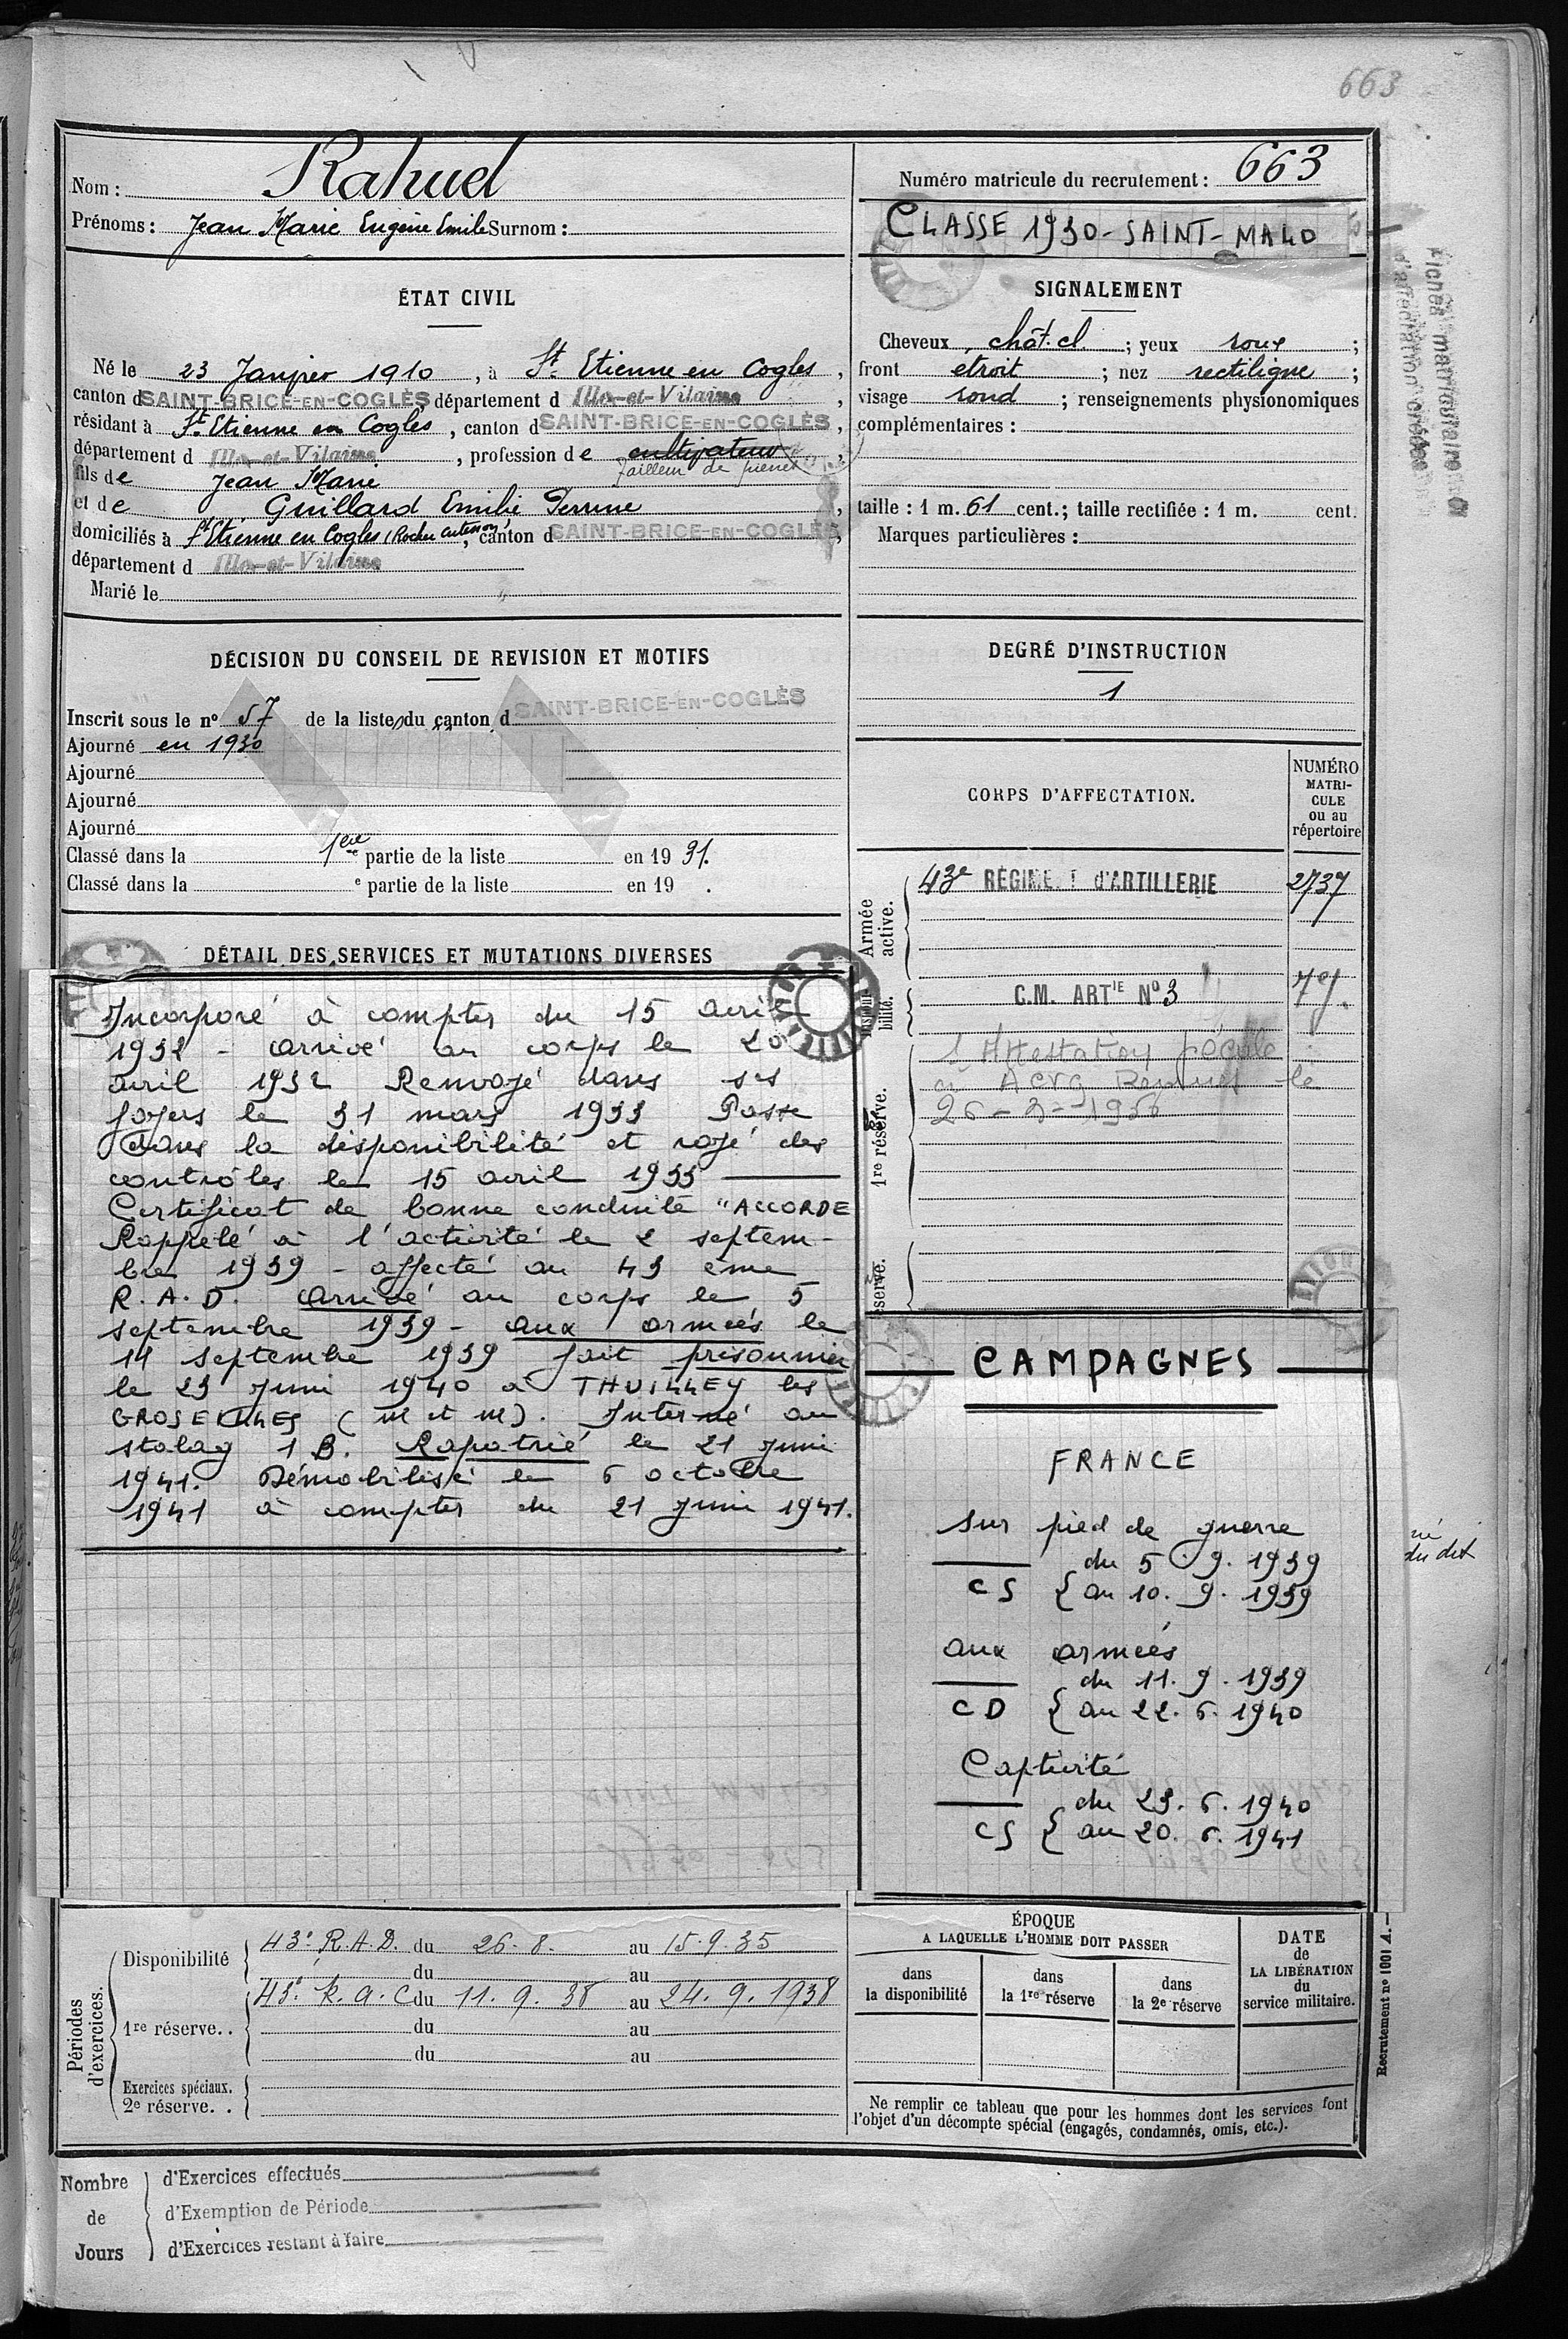 663
Nom : Rahuel
Prénoms : Jean Marie Eugène Emile Surnom :
Numéro matricule du recrutement : 663
CLASSE 1930 - SAINT-MALO
ÉTAT CIVIL
Né le 23 Janvier 1910, à St Etienne en Cogles,
canton d SAINT-BRICE-EN-COGLÈS, département d Ille-et-Vilaine,
résidant à St Etienne en Cogles, canton d SAINT-BRICE-EN-COGLÈS,
département d Ille-et-Vilaine, profession de cultivateur
Tailleur de pierres
fils de Jean Marie
et de Guillard Emilie Perrine,
domiciliés à St Etienne en Cogles (Rocher), canton d SAINT-BRICE-EN-COGLÈS,
département d Ille-et-Vilaine
Marié le
SIGNALEMENT
Cheveux chât. cl ; yeux roux ;
front étroit ; nez rectiligne ;
visage rond ; renseignements physionomiques
complémentaires :
taille : 1 m. 61 cent. ; taille rectifiée : 1 m. cent.
Marques particulières :
Fiches matriculaire &
d'affectation créées
DÉCISION DU CONSEIL DE REVISION ET MOTIFS
Inscrit sous le no 57 de la liste du canton d SAINT-BRICE-EN-COGLÈS
Ajourné en 1930
Ajourné
Ajourné
Ajourné
Classé dans la 1ere partie de la liste en 19 31.
Classé dans la e partie de la liste en 19 .
DEGRÉ D'INSTRUCTION
1
CORPS D'AFFECTATION.
NUMÉRO
MATRI-
CULE
ou au
répertoire
Armée
active.
43e RÉGIME T d'ARTILLERIE 2737
Disponi-
bilité.
C.M. ARTIE No 3
1re réserve.
1 Attestation
ACVG Rennes le
26-3-1956
réserve.
DÉTAIL DES SERVICES ET MUTATIONS DIVERSES
Incorporé à compter du 15 avril
1932 - arrivé au corps le 20
avril 1932 Renvoyé dans ses
foyers le 31 mars 1933 Passe
dans la disponibilité et rayé des
contrôles le 15 avril 1933
Certificat de bonne conduite "ACCORDE
Rappelé à l'activité le 2 septem-
bre 1939 - affecté au 43 ème
R.A.D. arrivé au corps le 5
septembre 1939 - aux armées le
11 septembre 1939 fait prisonnier
le 23 juin 1940 à THUILLEY les
GROSEILLES (M et M). Interné au
stalag 1 B. Rapatrié le 21 juin
1941. Démobilisé le 6 octobre
1941 à compter du 21 juin 1941.
CAMPAGNES
FRANCE
sur pied de guerre
du 5. 9. 1939
CS { au 10. 9. 1939
aux armées
du 11. 9. 1939
CD { au 22. 6. 1940
Captivité
du 23. 6. 1940
CS { au 20. 6. 1941
né
du dit
Périodes
d'exercices.
Disponibilité
43e R.A.D. du 26.8. au 15.9.35
du au
1re réserve..
43e R.A.C du 11. 9. 38 au 24. 9. 1938
du au
du au
Exercices spéciaux.
2e réserve. .
ÉPOQUE
A LAQUELLE L'HOMME DOIT PASSER
dans
la disponibilité
dans
la 1re réserve
dans
la 2e réserve
DATE
de
LA LIBÉRATION
du
service militaire.
Ne remplir ce tableau que pour les hommes dont les services font
l'objet d'un décompte spécial (engagés, condamnés, omis, etc.).
Recrutement no 1001 A.—
Nombre
de
Jours
d'Exercices effectués
d'Exemption de Période
d'Exercices restant à faire